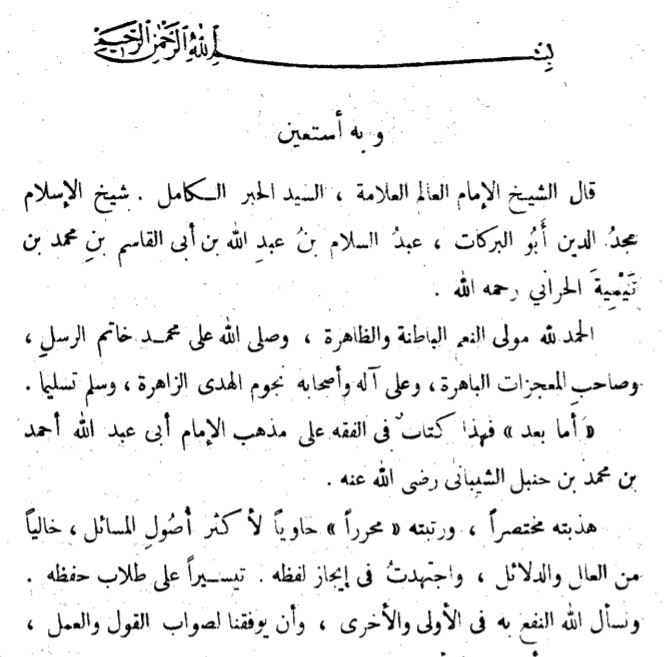 بِسْمِ اللهِ الرَّحْمٰنِ الرَّحِيمِ
وبه أستعين
قال الشيخ الإمام العالم العلامة ، السيد الحبر الكامل . شيخ الإسلام
مجدُ الدين أَبُو البركات ، عبدُ السلام بنُ عبدِ الله بن أبى القاسم بنِ محمد بن
تَيْمِيةَ الحراني رحمه الله .
الحمد لله مولى النعم الباطنة والظاهرة ، وصلى الله على محمد خاتم الرسلِ ،
وصاحبِ المعجزات الباهرة ، وعلى آله وأصحابه نجوم الهدى الزاهرة ، وسلم تسليما .
« أما بعد » فهذا كتابٌ فى الفقه على مذهب الإمام أبى عبد الله أحمد
بن محمد بن حنبل الشيبانى رضى الله عنه .
هذبته مختصراً ، ورتبته « محرراً » حاوياً لأكثر أصُولِ المسائل ، خالياً
من العال والدلائل ، واجتهدتُ فى إيجاز لفظه . تيسيراً على طلاب حفظه .
ونسأل الله النفع به فى الأولى والأخرى ، وأن يوفقنا لصواب القول والعمل ،